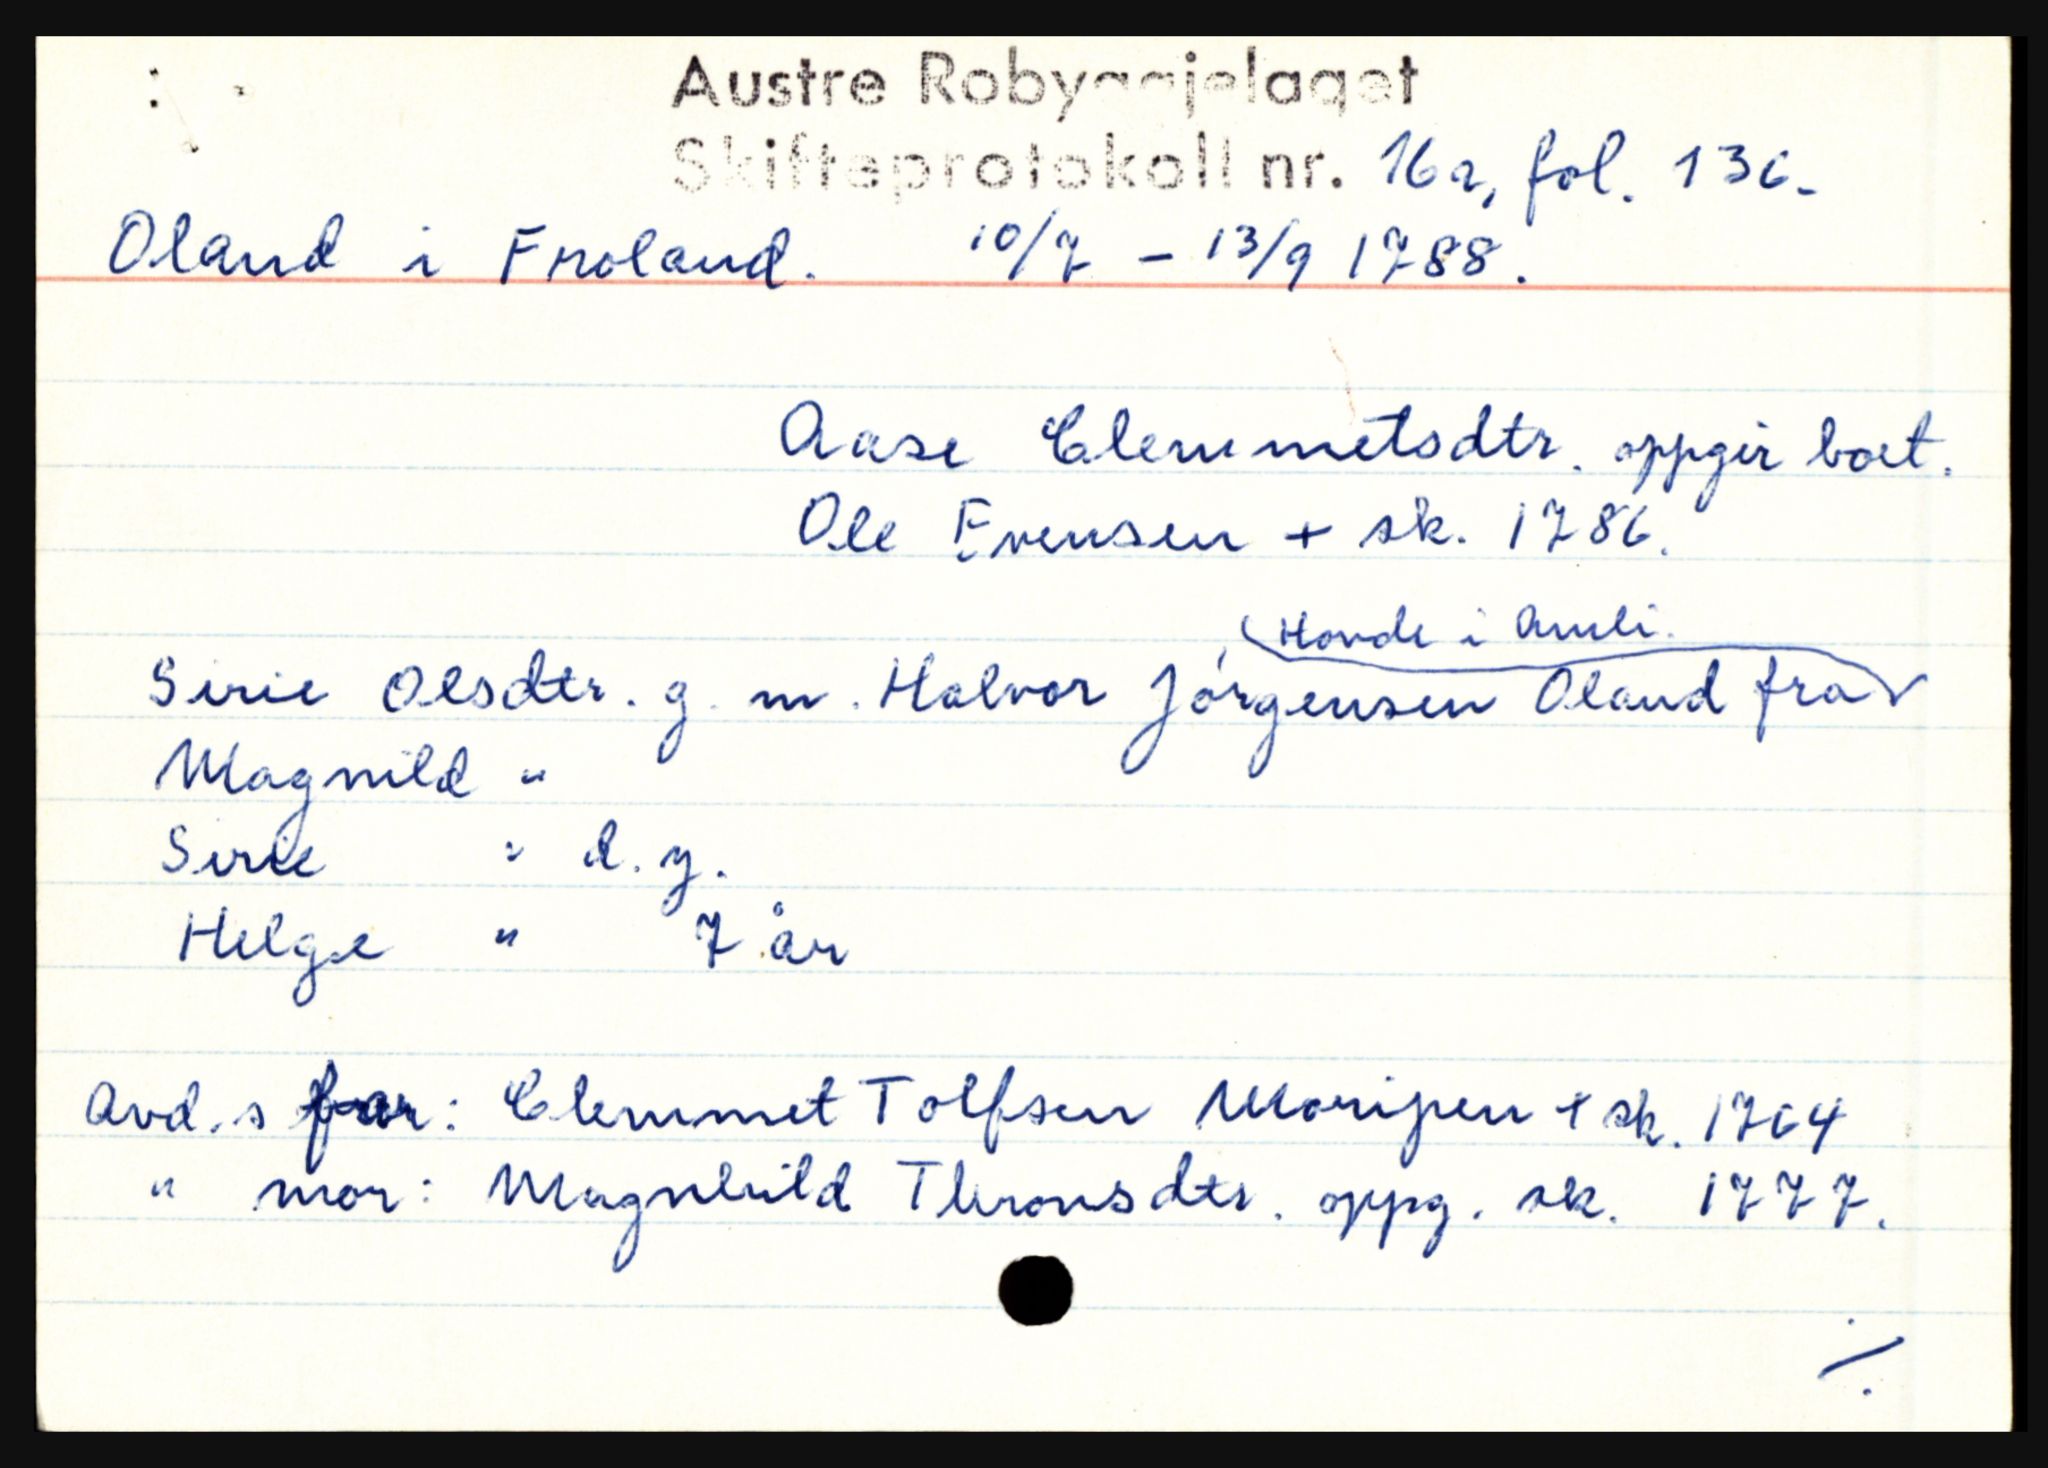 Austre Robyggjelaget
Skifteprotokoll nr. 16a, fol. 136.
Oland i Froland. 10/7 - 13/9 1788.
Aase Clemmetsdtr. oppgir boet.
Ole Evensen + sk. 1786.
Hovde i Amli.
Sirie Olsdtr. g. m. Halvor Jörgensen Oland fra
Magnild "
Sirie " d. y.
Helge " 7 år
Avd.s far: Clemmet Tolfsen Moripen + sk. 1764
" mor: Magnhild Thronsdtr. oppg. sk. 1777.
./.